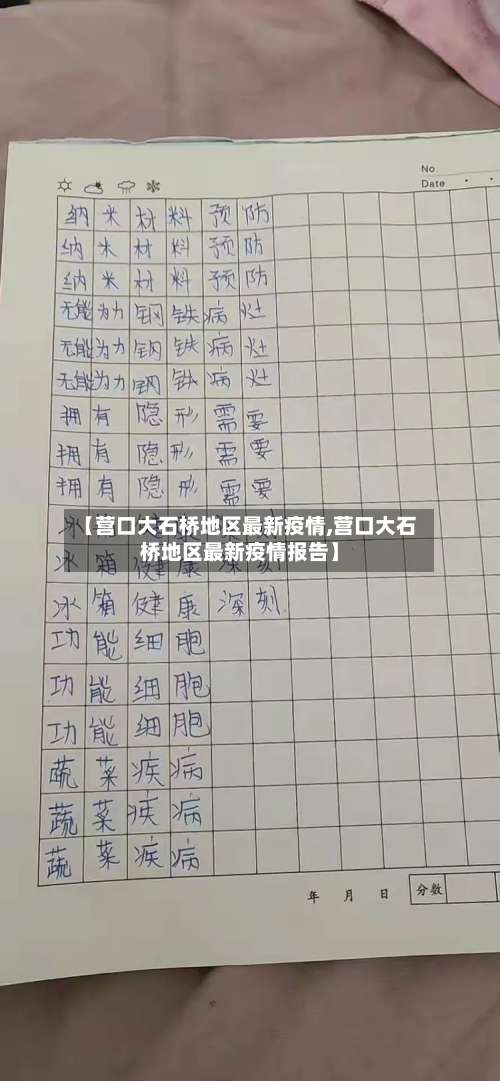 No.
Date
纳米材料预防
纳米材料预防
纳米材料预防
无能为力钢铁病灶
无能为力钢铁病灶
无能为力钢铁病灶
拥有隐形需要
拥有隐形需要
拥有隐形需要
【营口大石桥地区最新疫情,营口大石
桥地区最新疫情报告】
冰箱健康深刻
冰箱健康深刻
功能细胞
功能细胞
功能细胞
蔬菜疾病
蔬菜疾病
蔬菜疾病
年 月 日 分数